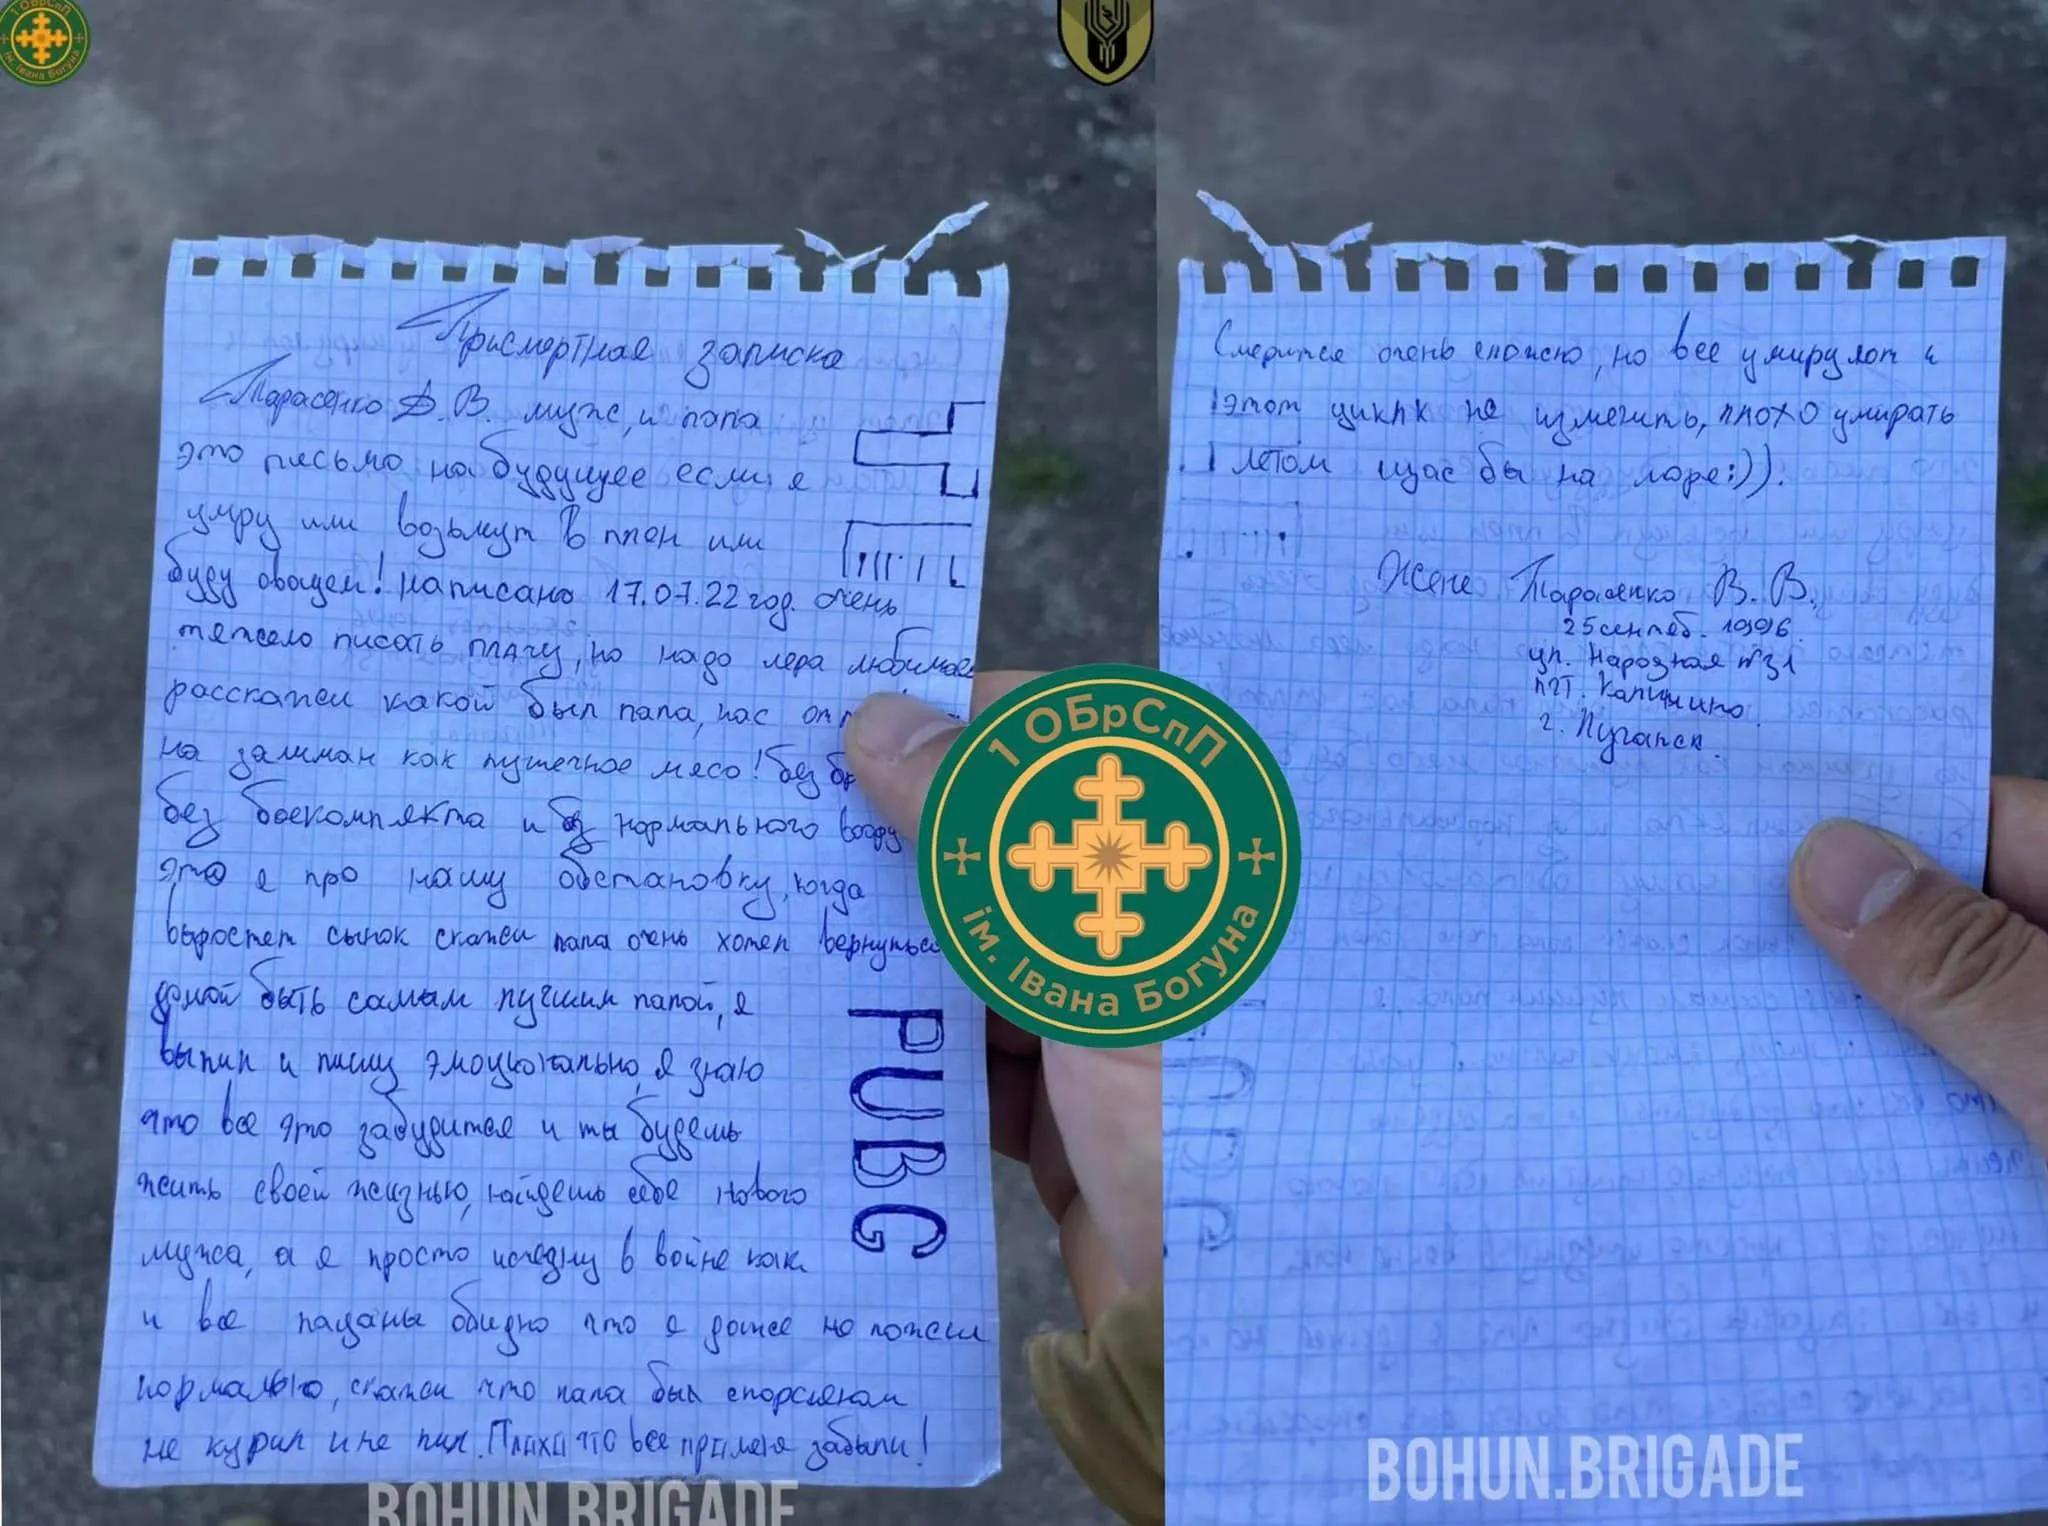 1 ОБрСпП
ім. Івана Богуна
Присмертная записка
Тарасенко Д. В. муж, и папа
это письмо на будущее если я
умру или возьмут в плен или
буду овощем! написано 17.07.22 год. очень
тяжело писать плачу, но надо лера любимая
расскажи какой был папа, нас
на залиман как пушечное мясо! без
без боекомплекта и без нормального воору
это я про нашу обстановку, когда
выростет сынок скажи папа очень хотел вернуться
домой быть самым лучшим папой, я
выпил и пишу эмоционально, я знаю
что все это забудится и ты будешь
жить своей жизнью, найдешь себе нового
мужа, а я просто исчезну в войне как
и все пацаны обидно что я даже не пожил
нормально, скажи что папа был спорсменом
не курил и не пил. что все про меня забыли!
PUBG
BOHUN.BRIGADE
1 ОБрСпП
ім. Івана Богуна
очень сложно, но все умирулют и
этот цикл не изменить, плохо умирать
летом щас бы на море:)).
Жене Тарасенко В. В.
25 сентяб. 1996.
ул. Народная №31
пгт. Калинино
г. Луганск.
BOHUN.BRIGADE